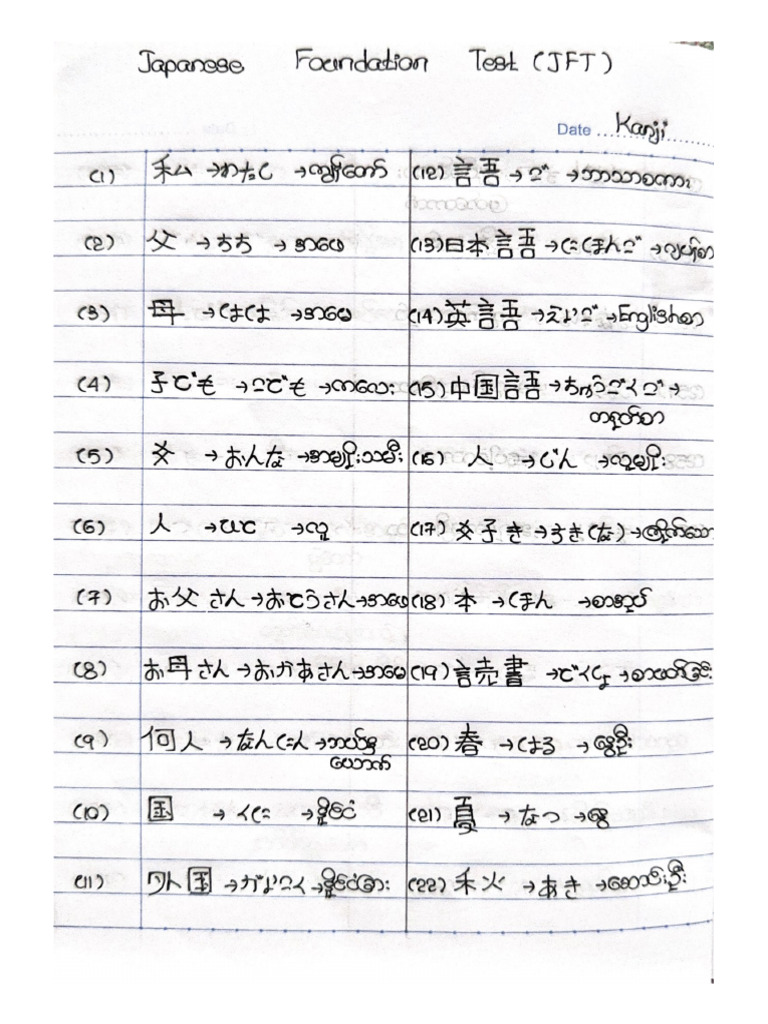 Japanese Foundation Test (JFT)
Date Kanji
(1) 私 → わたし → ကျွန်တော်
(2) 父 → ちち → အဖေ
(3) 母 → はは → အမေ
(4) 子ども → こども → ကလေး
(5) 女 → おんな → အမျိုးသမီး
(6) 人 → ひと → လူ
(7) お父さん → おとうさん → အဖေ
(8) お母さん → おかあさん → အမေ
(9) 何人 → なんにん → ဘယ်နှ
ယောက်
(10) 国 → くに → နိုင်ငံ
(11) 外国 → がいこく → နိုင်ငံခြား
(12) 言吾 → ご → ဘာသာစကား
(13) 日本言吾 → にほんご → ဂျပန်စာ
(14) 英言吾 → えいご → Englishစာ
(15) 中国言吾 → ちゅうごくご →
တရုတ်စာ
(16) 人 → じん → လူမျိုး
(17) 女子き → すき(な) → ကြိုက်သော
(18) 本 → ほん → စာအုပ်
(19) 言売書 → どくしょ → စာဖတ်ခြင်း
(20) 春 → はる → နွေဦး
(21) 夏 → なつ → နွေ
(22) 禾火 → あき → ဆောင်းဦး